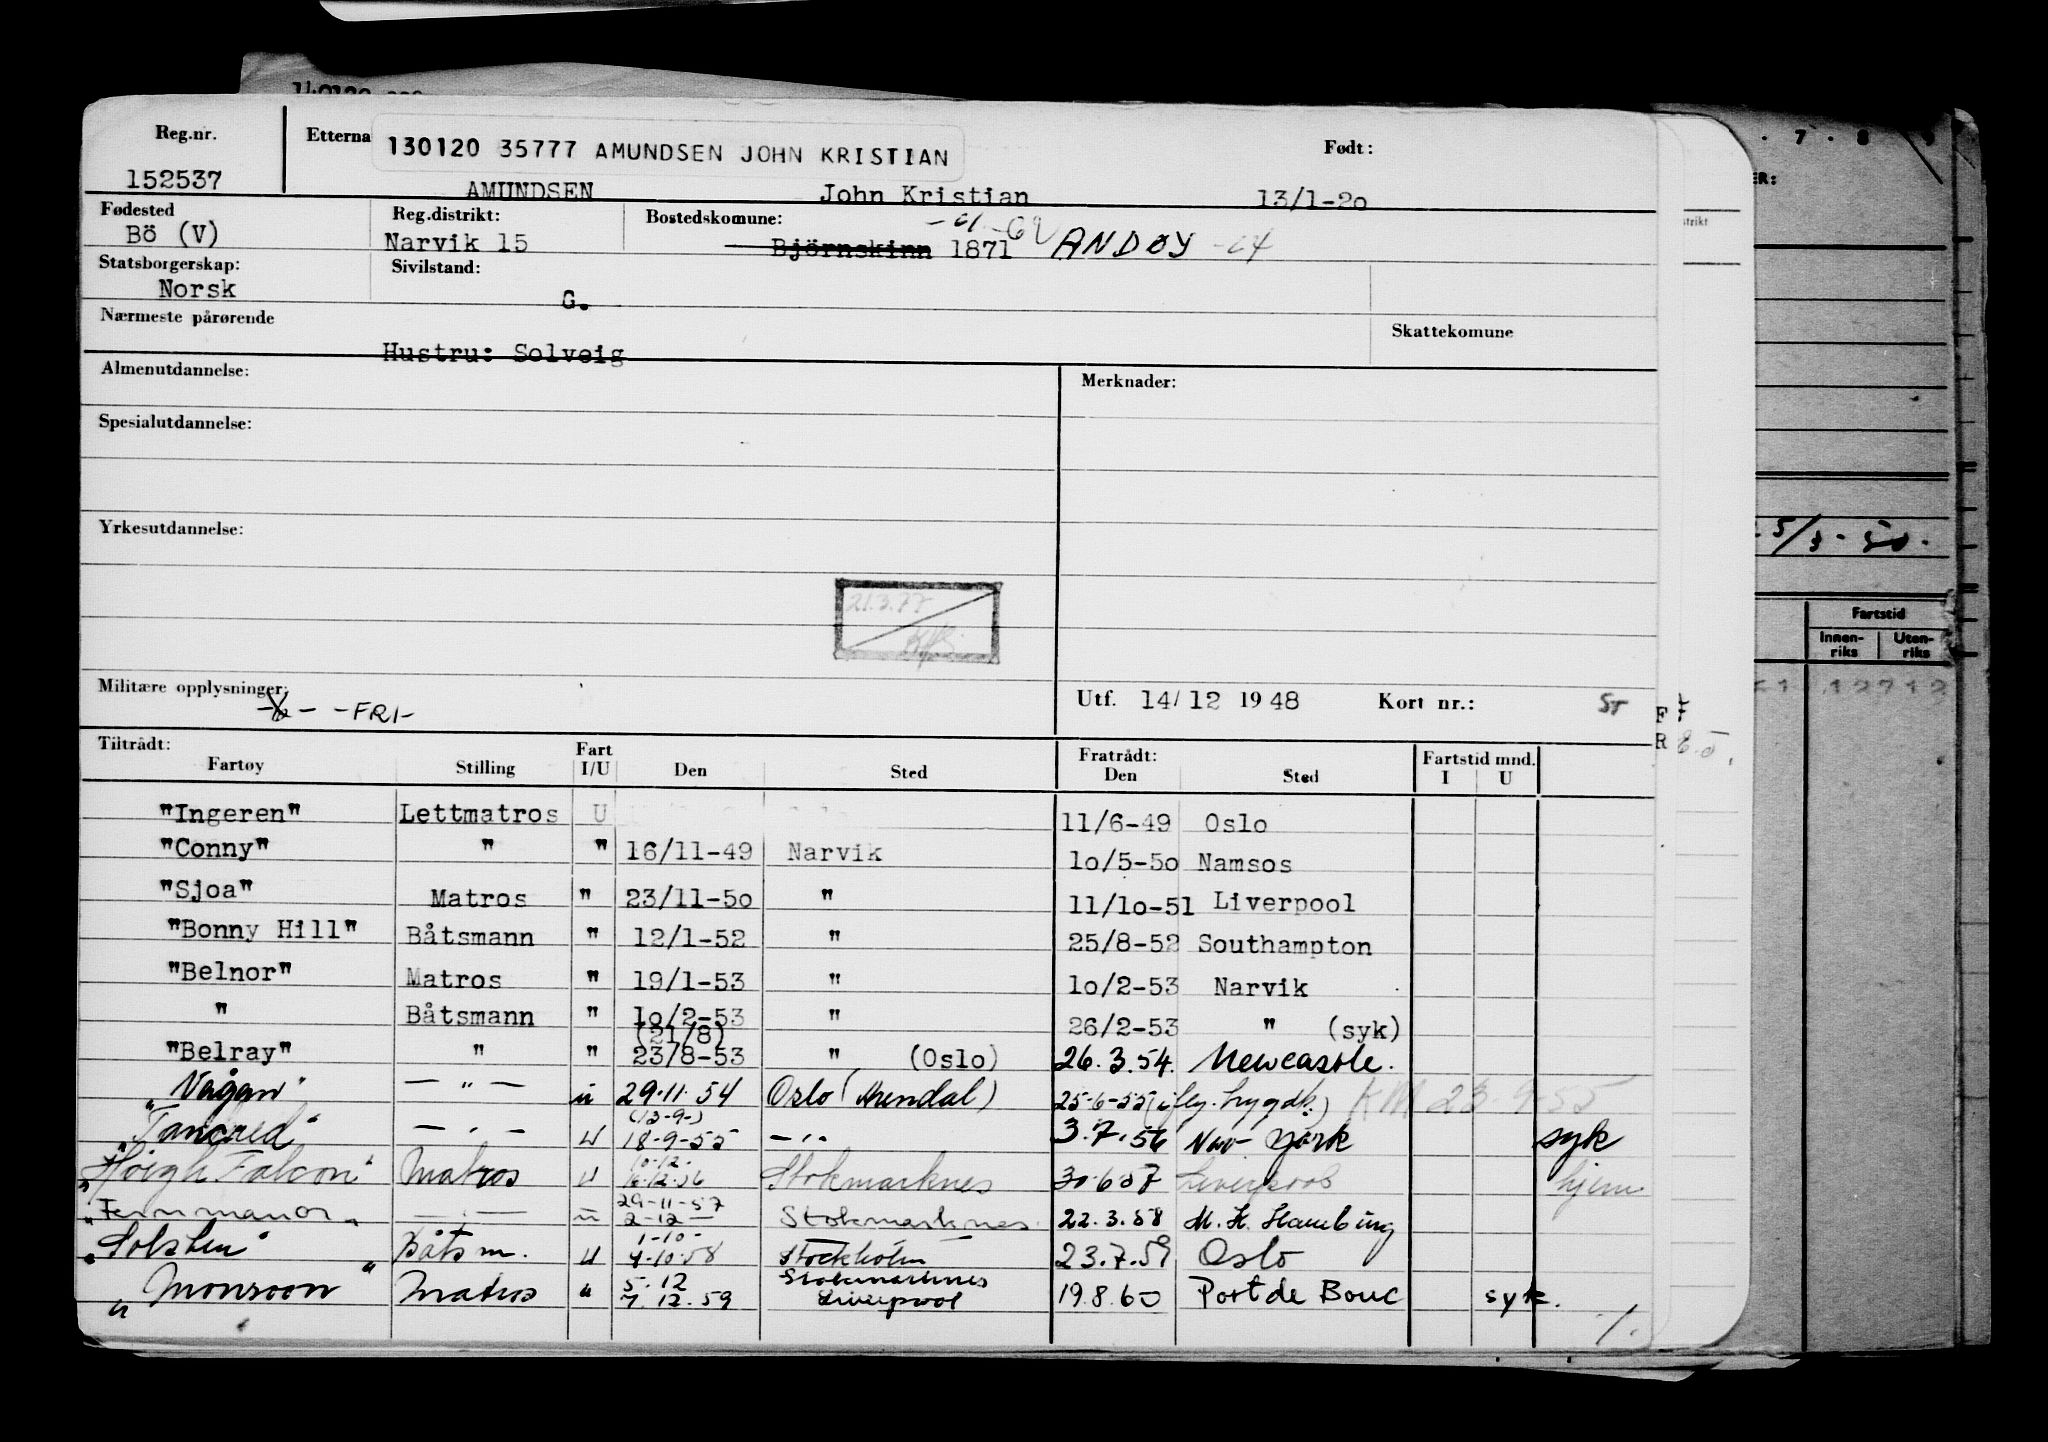 Reg.nr.
152537
Etterna
130120 35777 AMUNDSEN JOHN KRISTIAN
Født:
AMUNDSEN John Kristian 13/1-20
Fødested
Bö (V)
Reg.distrikt:
Narvik 15
Bostedskomune:
Björnskinn 1871 ANDØY
Statsborgerskap:
Norsk
Sivilstand:
G.
Nærmeste pårørende
Hustru: Solveig
Skattekomune
Almenutdannelse:
Merknader:
Spesialutdannelse:
Yrkesutdannelse:
21.3.77
Militære opplysninger:
-FRI-
Utf. 14/12 1948 Kort nr.:
Tiltrådt: Fratrådt: Fartstid mnd.
Fartøy Stilling Fart I/U Den Sted Den Sted I U
"Ingeren" Lettmatros U 11/6-49 Oslo
"Conny" " " 16/11-49 Narvik 10/5-50 Namsos
"Sjoa" Matros " 23/11-50 " 11/10-51 Liverpool
"Bonny Hill" Båtsmann " 12/1-52 " 25/8-52 Southampton
"Belnor" Matros " 19/1-53 " 10/2-53 Narvik
" Båtsmann " 10/2-53 " 26/2-53 " (syk)
(21/8)
"Belray" " " 23/8-53 " (Oslo) 26.3.54. Newcastle.
"Vågan" — " — u 29.11.54 Oslo (Arendal) 25-6-55 KM 23-9-55
(13-9-)
"Tancred" — " — U 18-9-55 — " 3.7.56 New York syk
10-12-
"Høigh Falcon" Matros U 16.12.56 Stokmarknes 30.6.57 Liverpool hjem
29-11-57
"Fernmanor" — " — u 2-12 — Stokmarknes 22.3.58 M. K. Hamburg
1-10-
"Solsten" Båtsm. U 4.10.58 Stockholm 23.7.59 Oslo
5.12 Stokmarknes
"Monsoon" Matros " 7.12.59 Liverpool 19.8.60 Port de Bouc syk.
Fartstid
Innen-riks Uten-riks